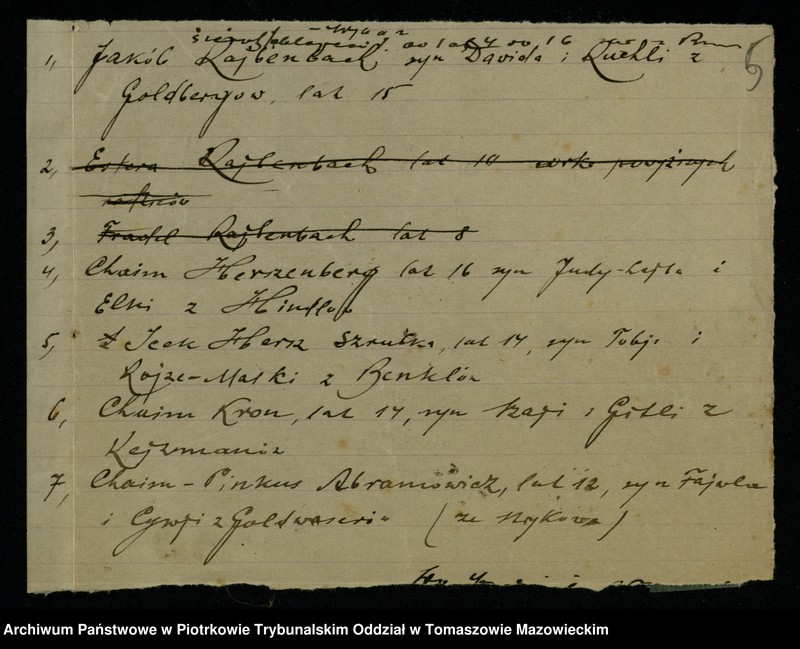 od lat 4 do 16
5
1, Jakób Rajbenbach, syn Davida i Ruchli z
Goldbergow, lat 15
2, Estera Rajbenbach lat 10 powyższych
3, Fradel Rajbenbach lat 8
4, Chaim Herszenberg lat 16 syn Judy-Lajba i
Elki z
5, Icek Hersz Szrutka, lat 14, syn Tobji i
Rojze-Malki z Benklów
6, Chaim Kron, lat 14, syn i Gitli z
7, Chaim-Pinkus Abramowicz, lat 12, syn Fajwla
i Cywji z Goldwaserów (ze Strykowa)
Archiwum Państwowe w Piotrkowie Trybunalskim Oddział w Tomaszowie Mazowieckim